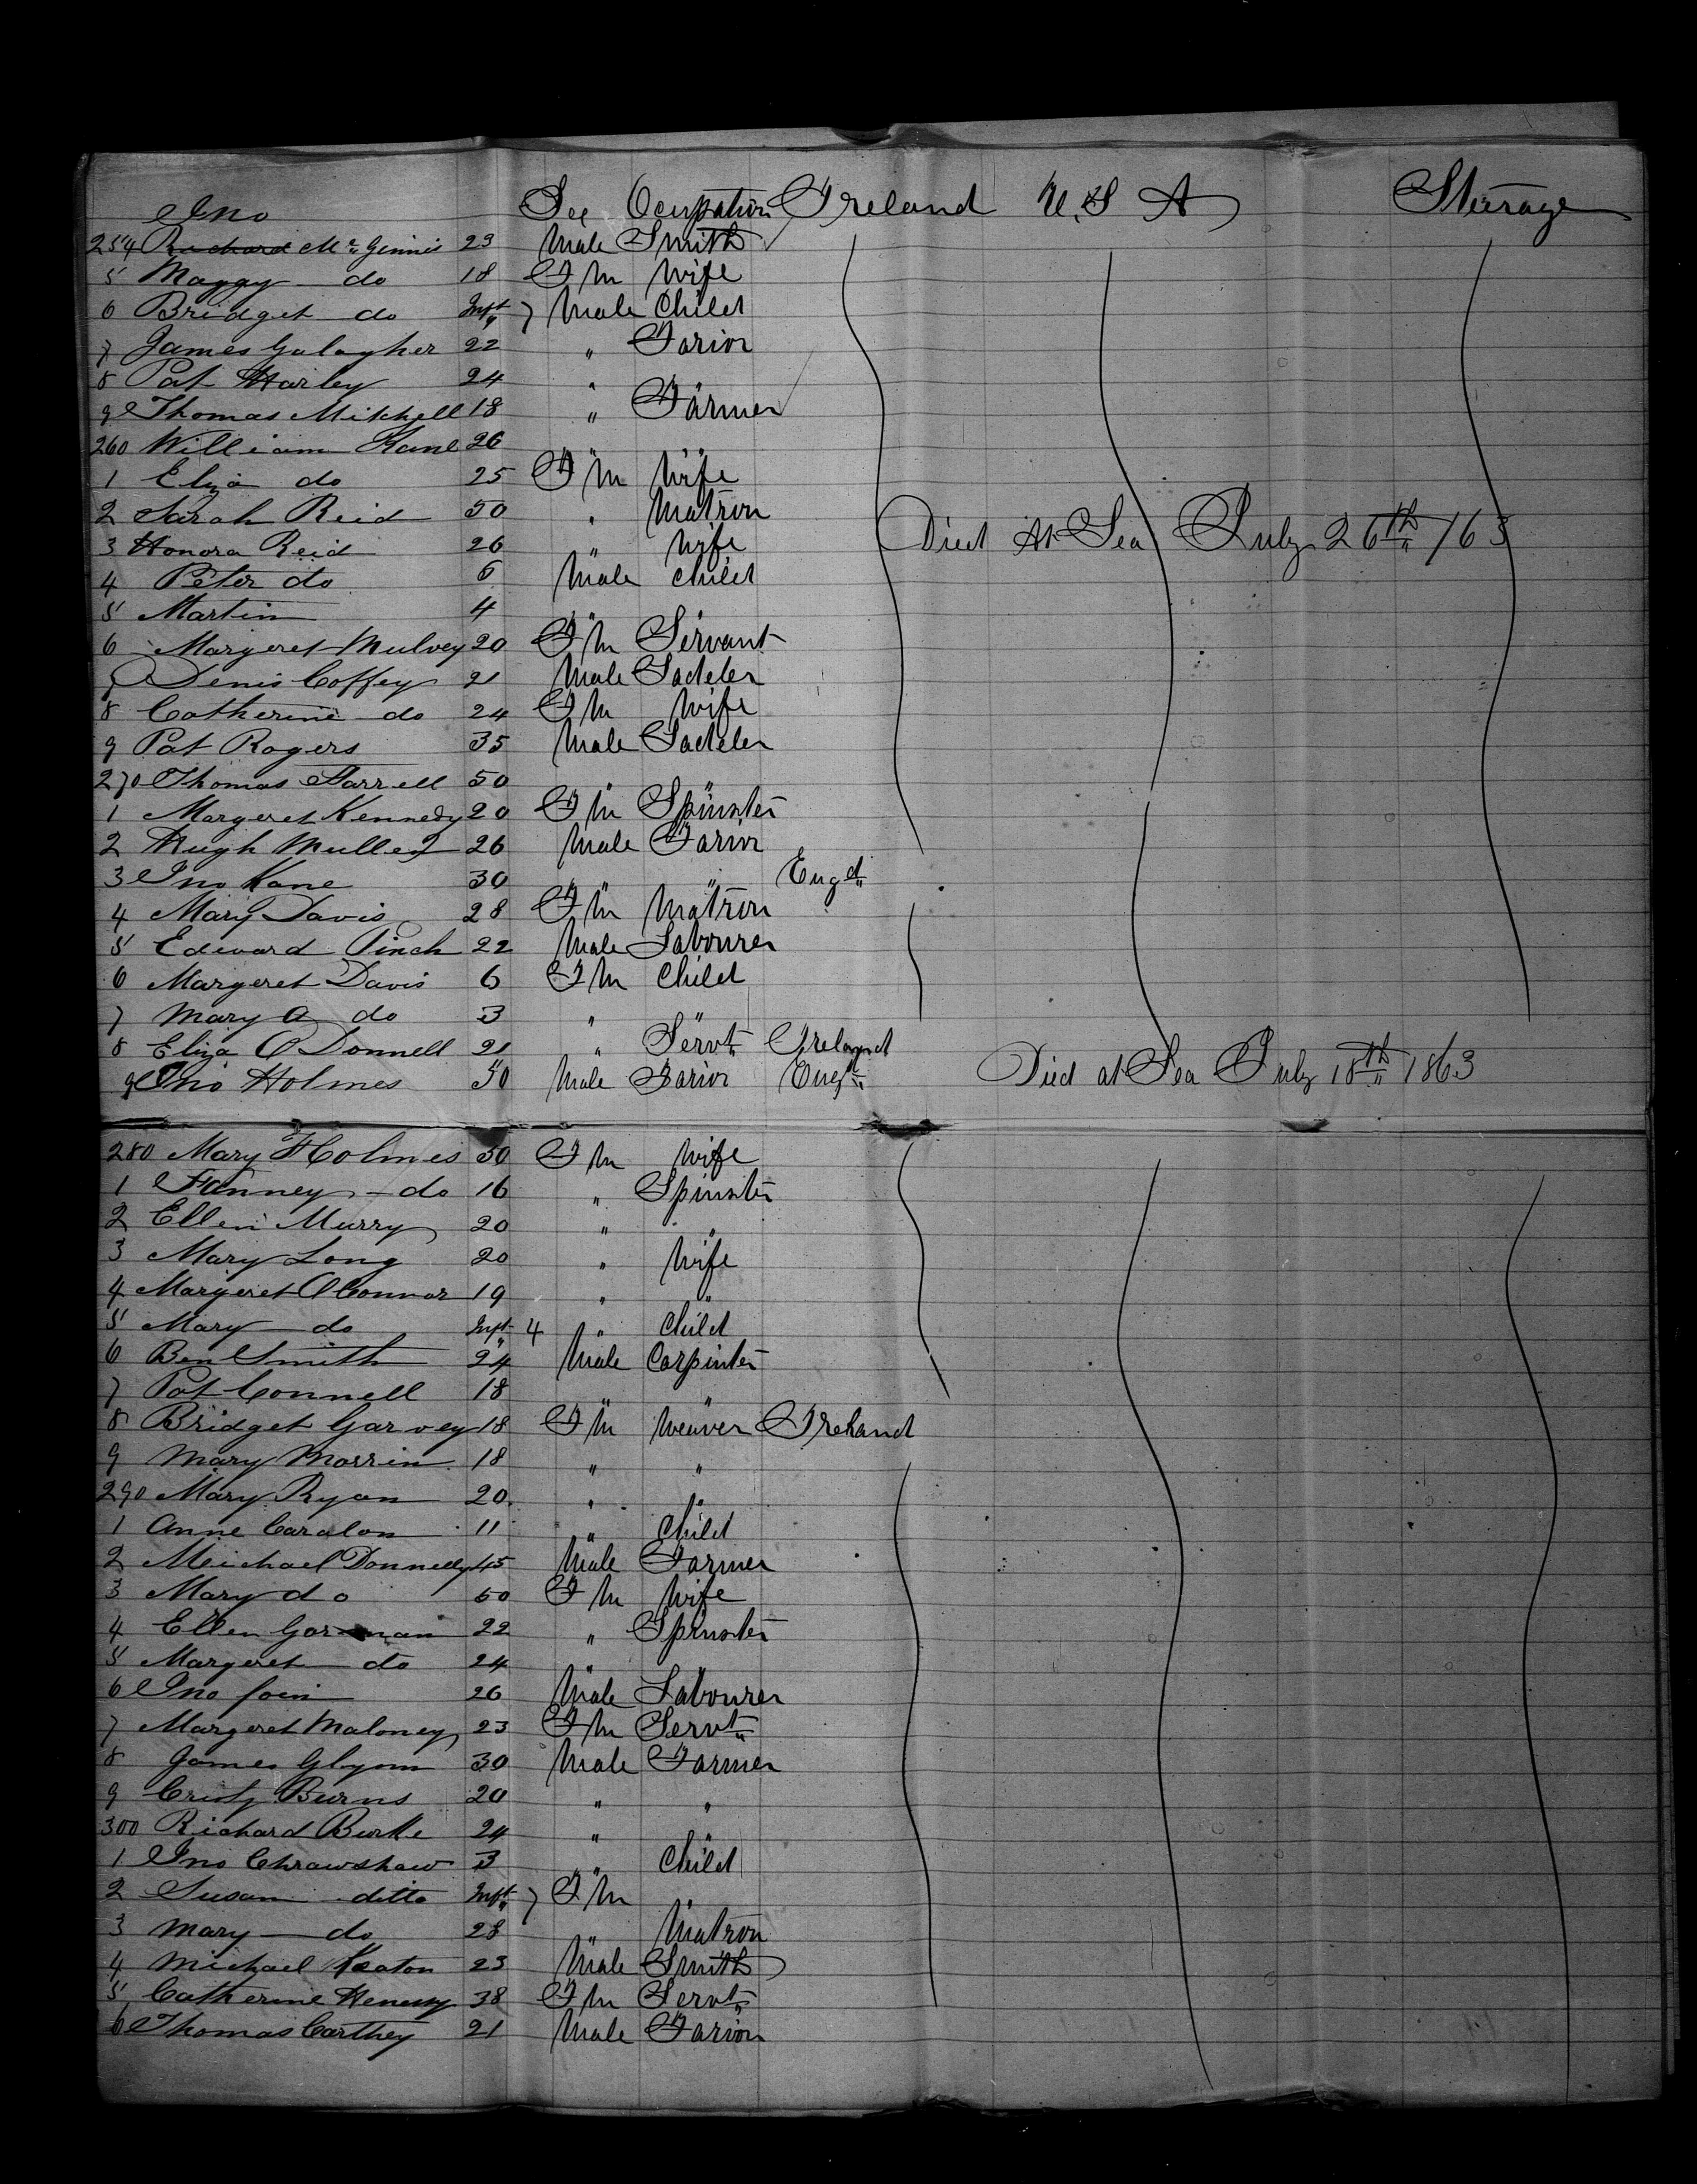 Jno Sex Ocupation Ireland U.S A Steerage
254 Richard Mc Ginnis 23 Male Smith
5 Maggy do 18 Fm Wife
6 Bridget do Inft 7 Male Child
7 James Galagher 22 " Farior
8 Pat Harley 24 " "
9 Thomas Mitchell 18 " Farmer
260 William Kane 26 " "
1 Eliza do 25 Fm Wife
2 Sarah Reid 50 " Matron
3 Honora Reid 26 " Wife Died At Sea July 26th /63
4 Peter do 6 Male Child
5 Martin 4 " "
6 Margeret Mulvey 20 Fm Servant
7 Denis Coffey 21 Male Sadeler
8 Catherine do 24 Fm Wife
9 Pat Rogers 35 Male Sadeler
270 Thomas Farrell 50 " "
1 Margeret Kennedy 20 Fm Spinster
2 Hugh Mulley 26 Male Farior
3 Jno Kane 30 " " Engd
4 Mary Davis 28 Fm Matron
5 Edward Pinch 22 Male Labourer
6 Margeret Davis 6 Fm Child
7 Mary A do 3 " "
8 Eliza O Donnell 21 " Servt Ireland
9 Jno Holmes 50 Male Farior Engd Died at Sea July 18th 1863
280 Mary Holmes 50 Fm Wife
1 Fanney do 16 " Spinster
2 Ellen Murry 20 " "
3 Mary Long 20 " Wife
4 Margeret OConnor 19 " "
5 Mary do Inft 4 " Child
6 Ben Smith 24 Male Carpinter
7 Pat Connell 18 " "
8 Bridget Garvey 18 Fm Weaver Ireland
9 Mary Morrin 18 " "
290 Mary Ryan 20 " "
1 Anne Caralon 11 " Child
2 Meichael Donnelly 45 Male Farmer
3 Mary do 50 Fm Wife
4 Ellen Gorman 22 " Spinster
5 Margeret do 24 " "
6 Jno foin 26 Male Labourer
7 Margeret Maloney 23 Fm Servt
8 James Glynn 30 Male Farmer
9 Cristy Burns 20 " "
300 Richard Burke 24 " "
1 Jno Chrawshaw 3 " Child
2 Susan ditto Inft 7 Fm "
3 Mary do 28 " Matron
4 Michael Keaton 23 Male Smith
5 Catherine Henessy 38 Fm Servt
6 Thomas Carthey 21 Male Farion